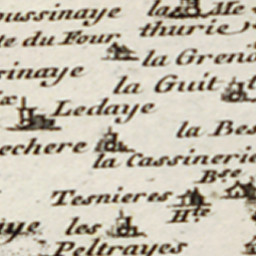 la Me
te du Four thurie
la Gren
la Guit
Ledaye
la Bes
la Cassinerie
Bse
Tesnieres
Hte
les
Peltrayes